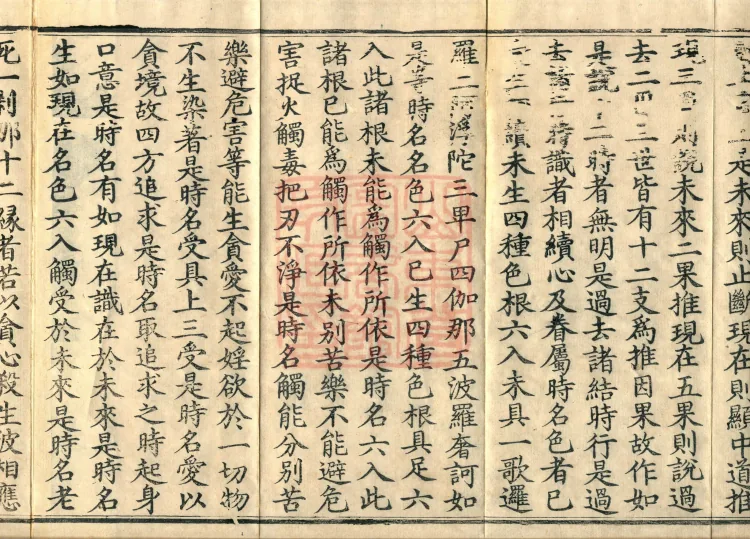 是未來則止斷現在則顯中道推
現三說未來二果推現在五果則說過
去二世皆有十二支為推因果故作如
是說二時者無明是過去諸結時行是過
去諸時識者相續心及眷屬時名色者已
生續未生四種色根六入未具一歌邏
羅二浮陀三卑尸四伽那五波羅奢訶如
是等時名名色六入已生四種色根具足六
入此諸根未能為觸作所依是時名六入此
諸根已能為觸作所依未別苦樂不能避危
害捉火觸毒把刃不淨是時名觸能分別苦
樂避危害等能生貪愛不起婬欲於一切物
不生染著是時名受具上三受是時名愛以
貪境故四方追求是時名取追求之時起身
口意是時名有如現在識在於未來是時名
生如現在名色六入觸受於未來是時名老
死一剎那十二緣者若以貪心殺生彼相應